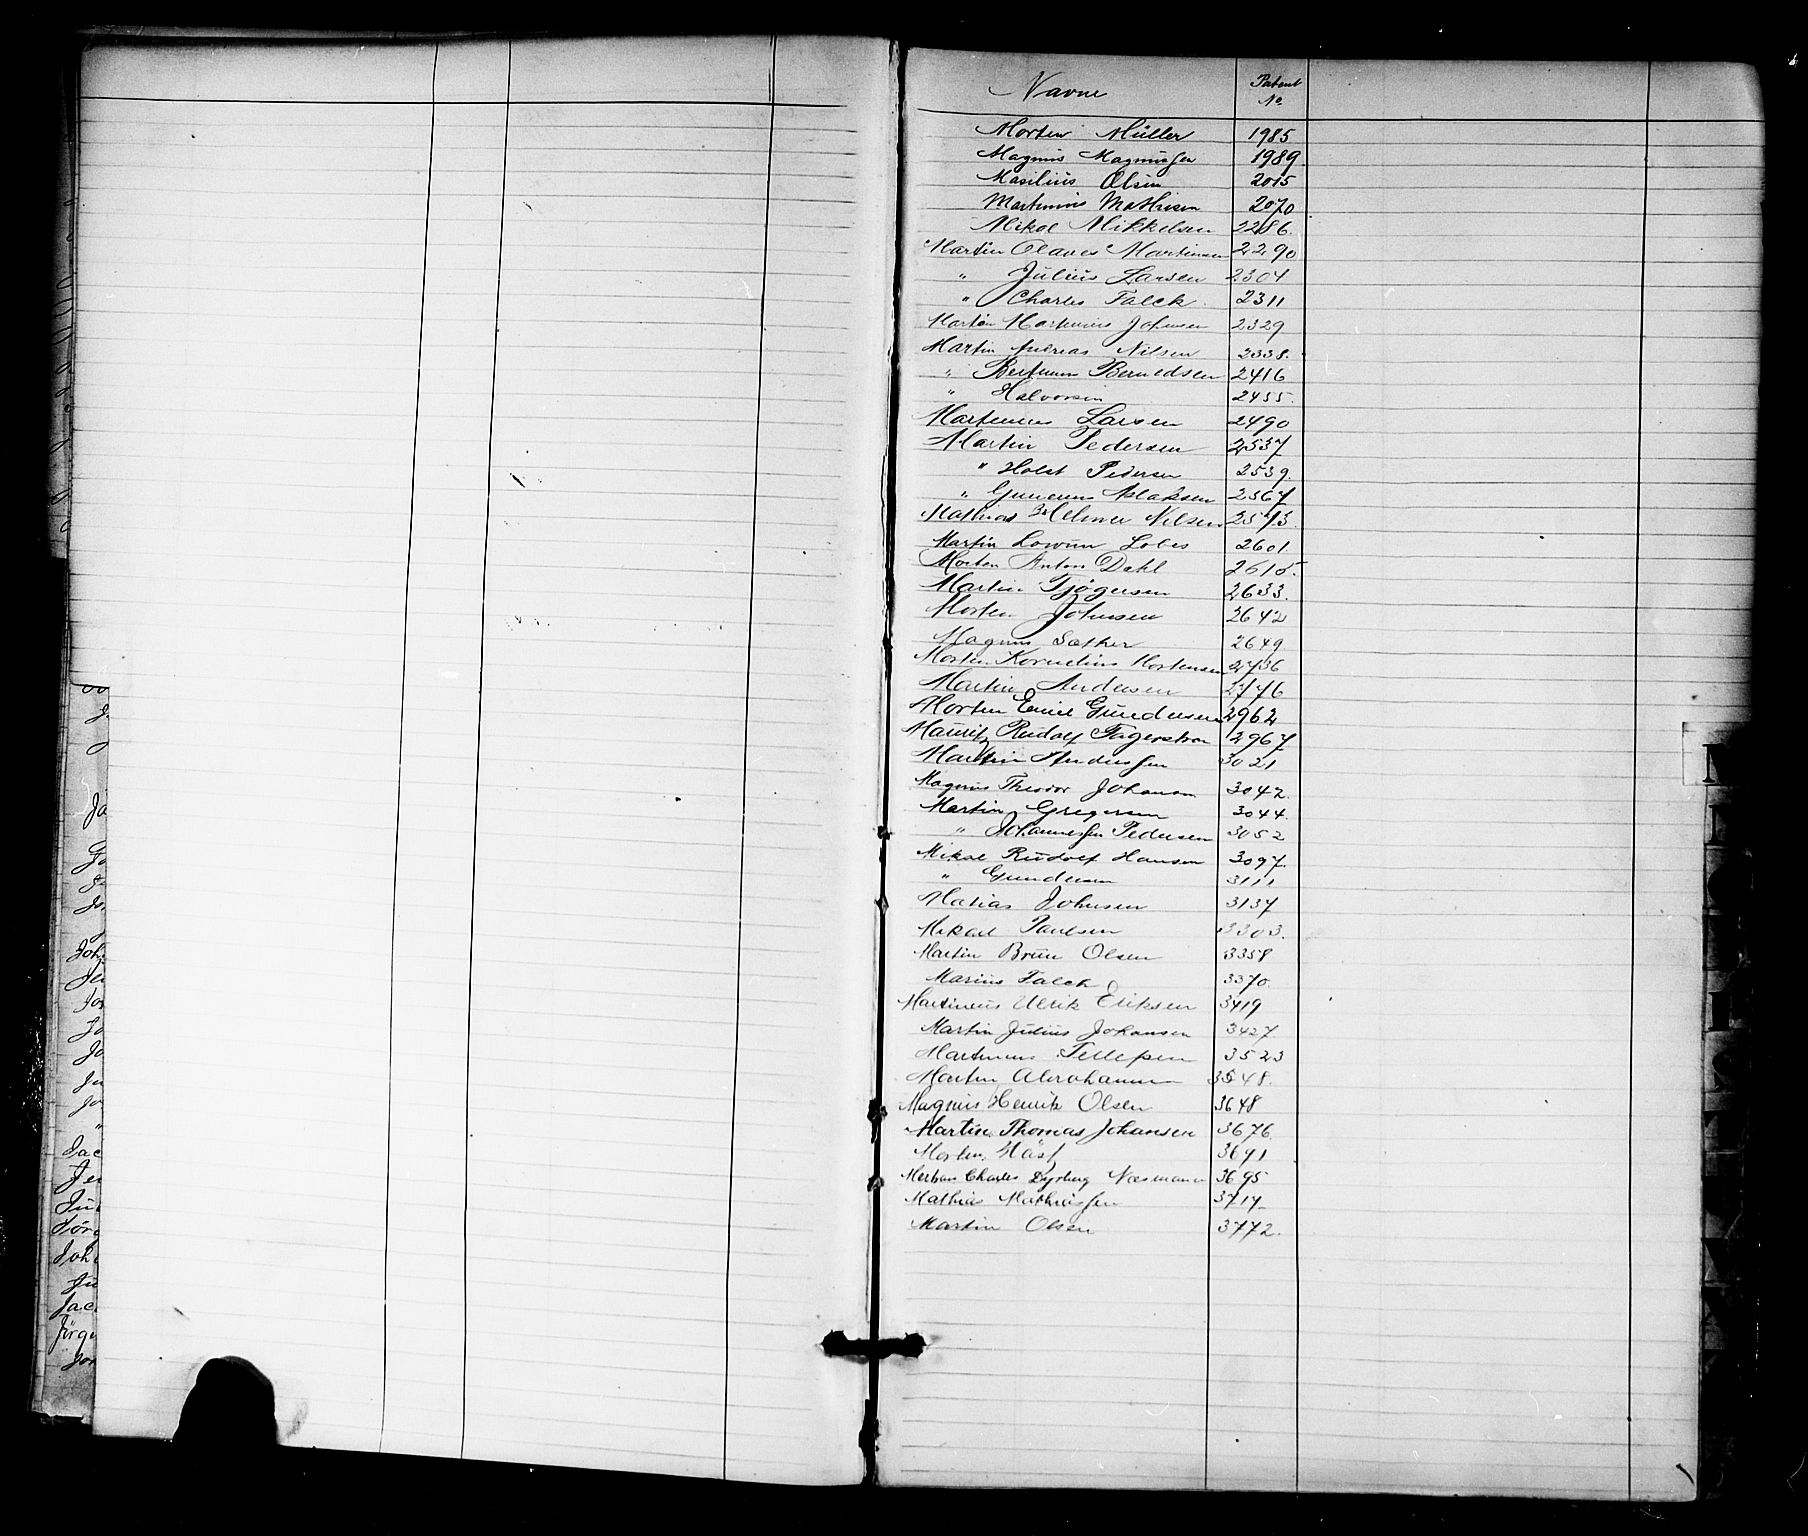 Navne Patent No
Morten Müller 1985
Magnus Magnussen 1989.
Masilius Olsen 2015
Martinius Mathisen 2070
Mikal Mikkelsen 2286.
Martin Olaves Martinsen 2290
" Julius Larsen 2304
" Charles Falck 2311
Martin Martinius Johnsen 2329
Martin Andreas Nilsen 2338.
" Berntsen 2416
" Halvorsen 2455.
Martinius Larsen 2490
Martin Pedersen 2537
" Holst Pedersen 2539.
" Gunerius Aslaksen 2567
Mathias Nilsen 2573.
Martin 2601
Morten Anton Dahl 2615.
Martin 2633.
Morten Johnsen 2642
Magnus Sæther 2649
Morten Kornelius Mortensen 2736
Martin Andersen 2776
Morten Emil Gundersen 2962
Mauritz Rudolf Fagerstrøm 2967
Martin Anderssen 3021
Magnus Theodor Johansen 3042.
Martin Gregersen 3044.
" Johannessen Pedersen 3052
Mikal Rudolf Hansen 3097.
" Gundersen 3111
Matias Johnsen 3137
Mikael Paulsen 3303.
Martin Bruu Olsen 3358
Marius Falck 3370.
Martinius Ulrik Eriksen 3419
Martin Julius Johansen 3427
Martinius Tellefsen 3523
Martin Abrahamsen 3548.
Magnus Henrik Olsen 3648
Martin Thomas Johansen 3676.
Morten 3691
Charles Dyrberg Næsmann 3695
Mathias Mathiassen 3717
Martin Olsen 3772.